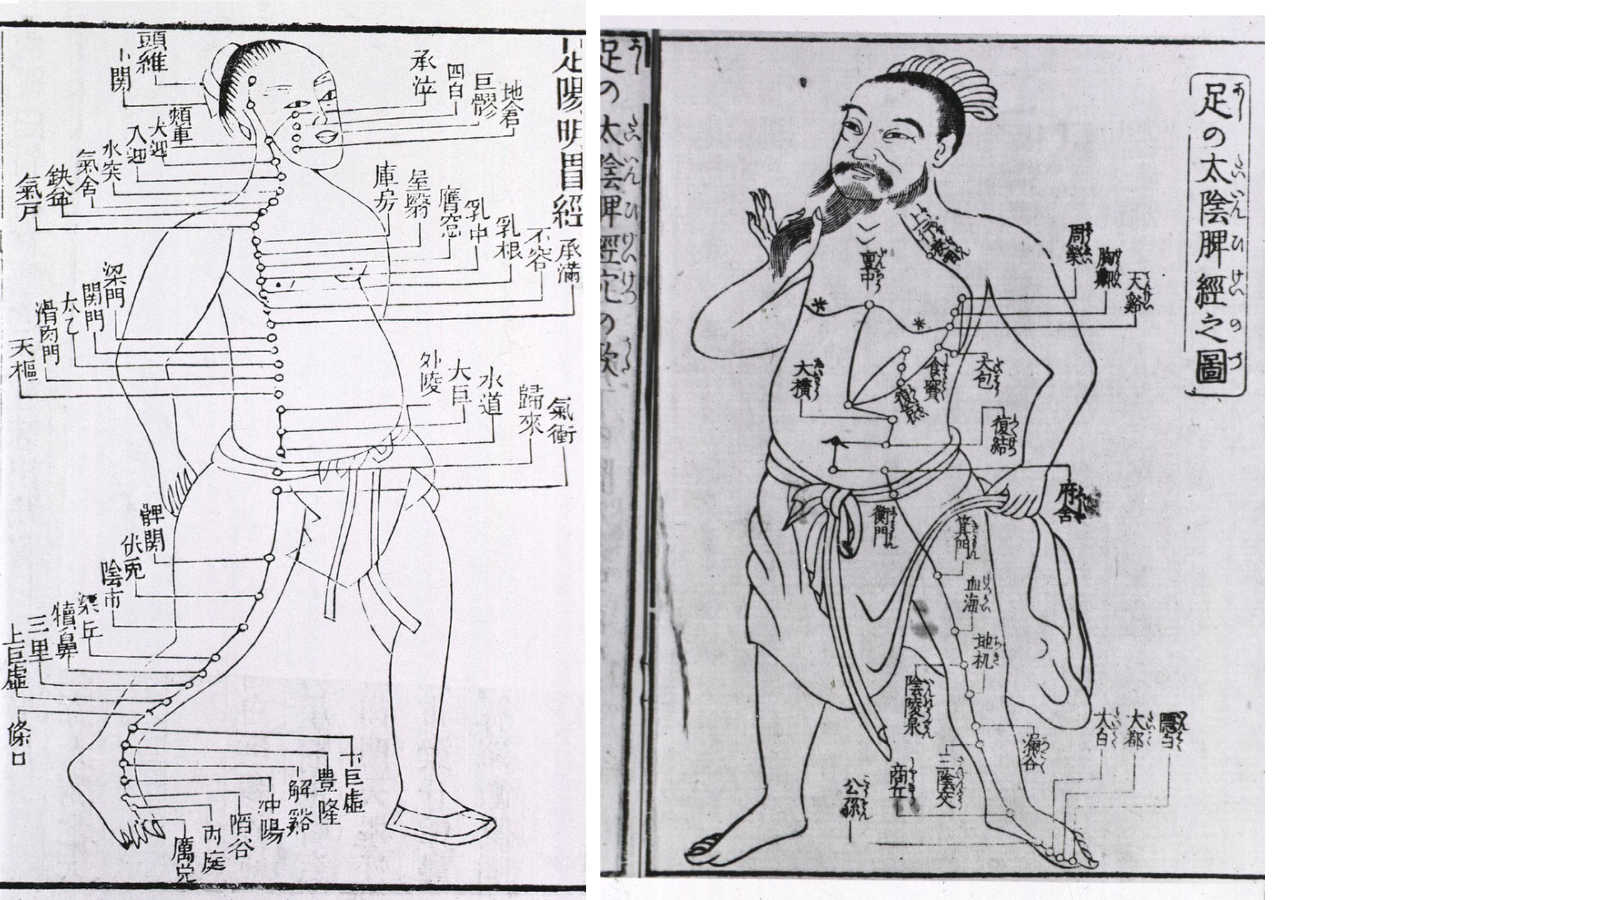 足陽明胃經
頭維
下関
頬車
大迎
人迎
水突
氣舎
鈌盆
氣戸
承泣
四白
巨髎
地倉
庫房
屋翳
膺窓
乳中
乳根
不容
承滿
梁門
関門
太乙
滑肉門
天樞
外陵
大巨
水道
歸來
氣衝
髀関
伏兎
陰市
梁丘
犢鼻
三里
上巨虚
條口
下巨虚
豊隆
解谿
冲陽
陷谷
内庭
厲兊
足の太陰脾經之圖
あし たいいんひけいのづ
足の太陰脾經穴の歌
周榮
胸郷
天谿
亶中
大横
食竇
大包
復結
府舎
衝門
箕門
血海
地机
陰陵泉
漏谷
三陰交
商丘
公孫
大白
大都
隠白